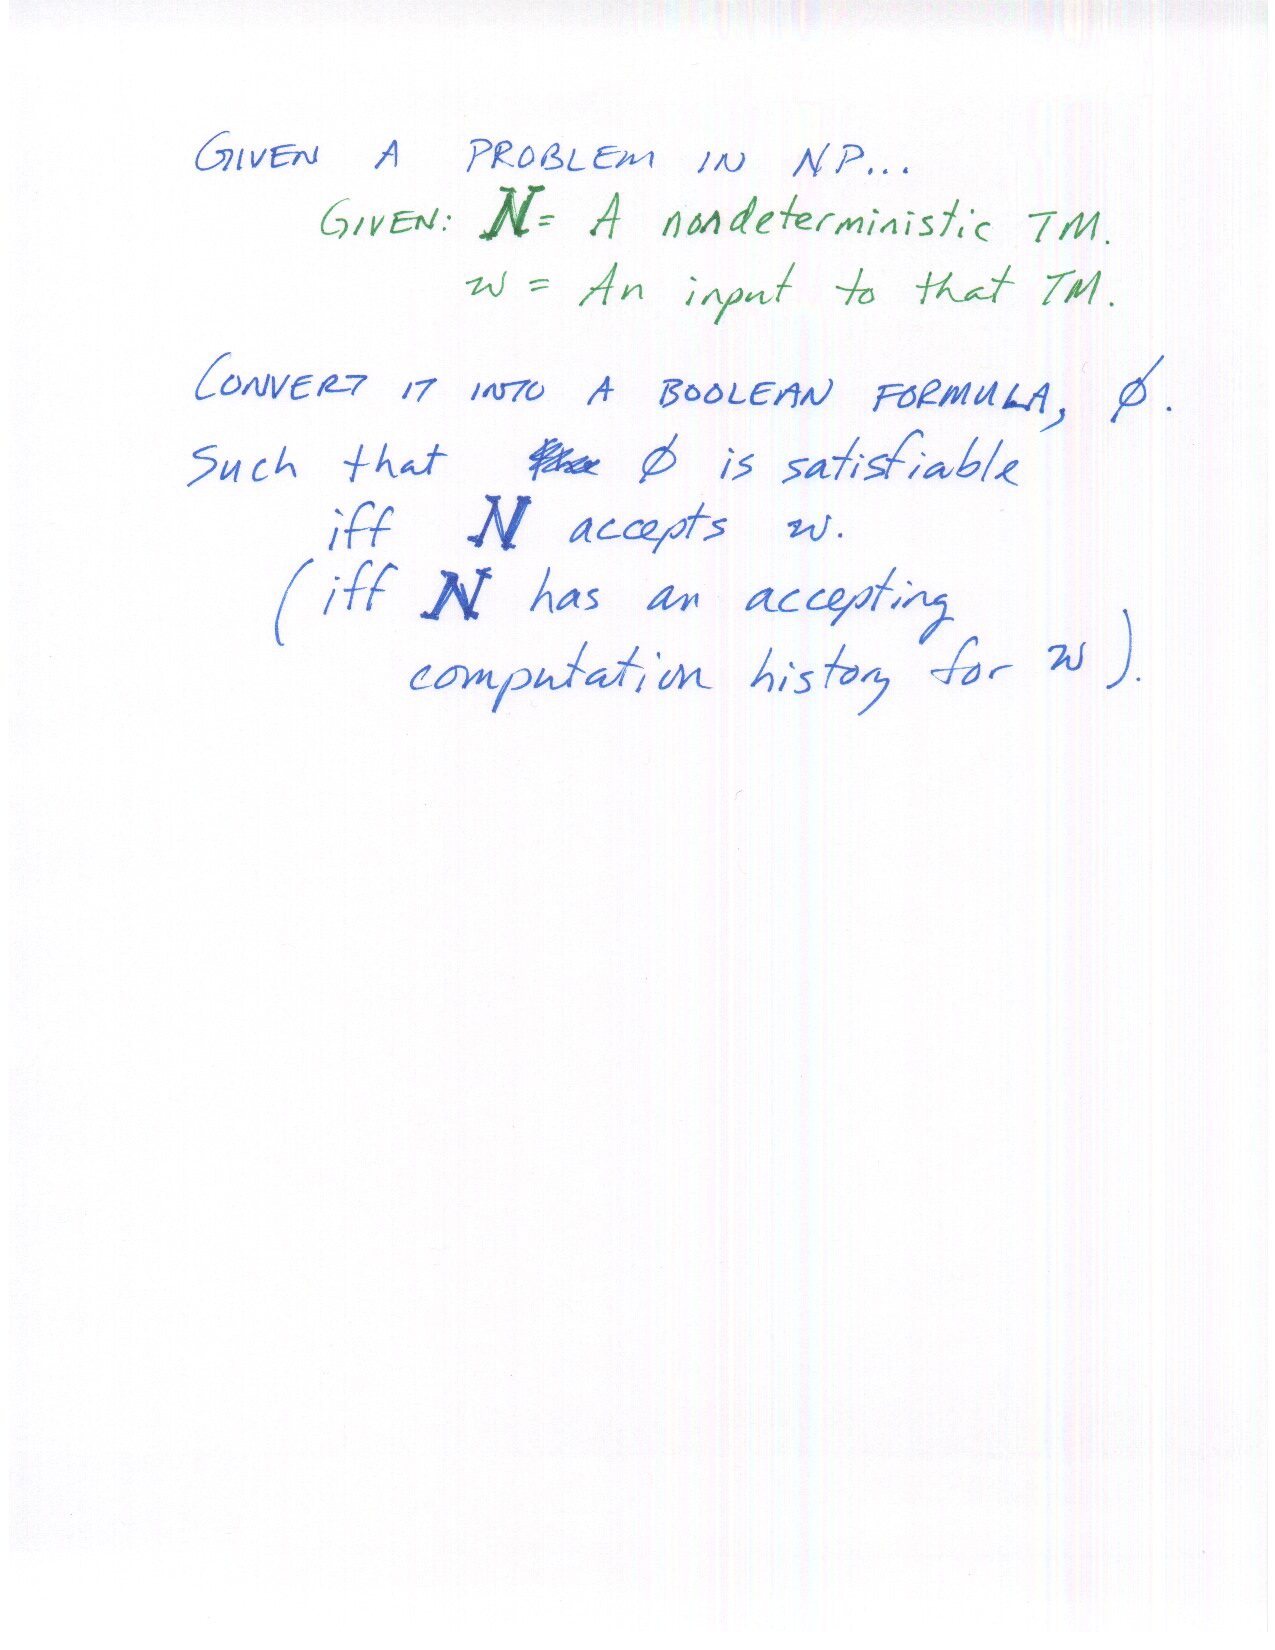 GIVEN A PROBLEM IN NP...
GIVEN: N = A nondeterministic TM.
w = An input to that TM.
CONVERT IT INTO A BOOLEAN FORMULA, ϕ.
Such that ϕ is satisfiable
iff N accepts w.
(iff N has an accepting
computation history for w).